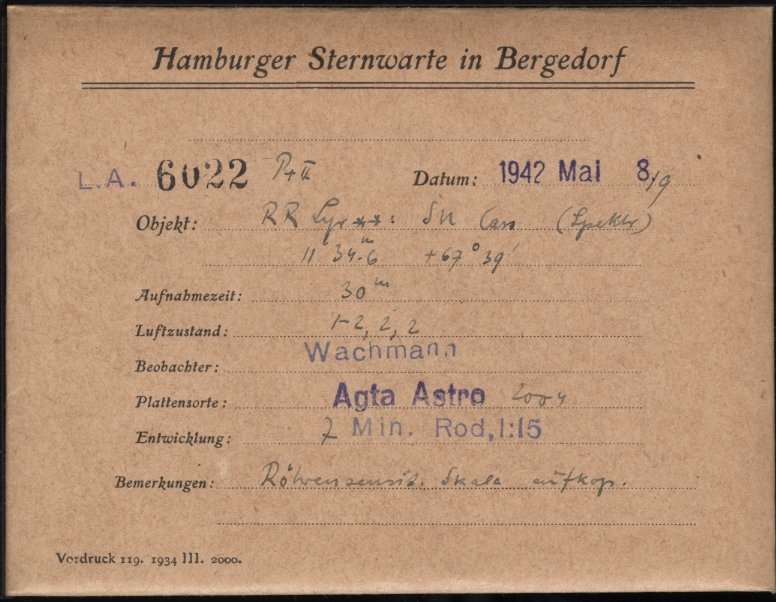 Hamburger Sternwarte in Bergedorf
L.A. 6022 P+II Datum: 1942 Mai 8/9
Objekt: RR Lyr **: SU Cass (Spektr)
11ʰ 34.ᵐ6 +67° 39'
Aufnahmezeit: 30ᵐ
Luftzustand: 1-2, 2, 2
Beobachter: Wachmann
Plattensorte: Agfa Astro
Entwicklung: 7 Min. Rod,1:15
Bemerkungen: Röhrensensit. Skala aufkop.
Vordruck 119. 1934 III. 2000.